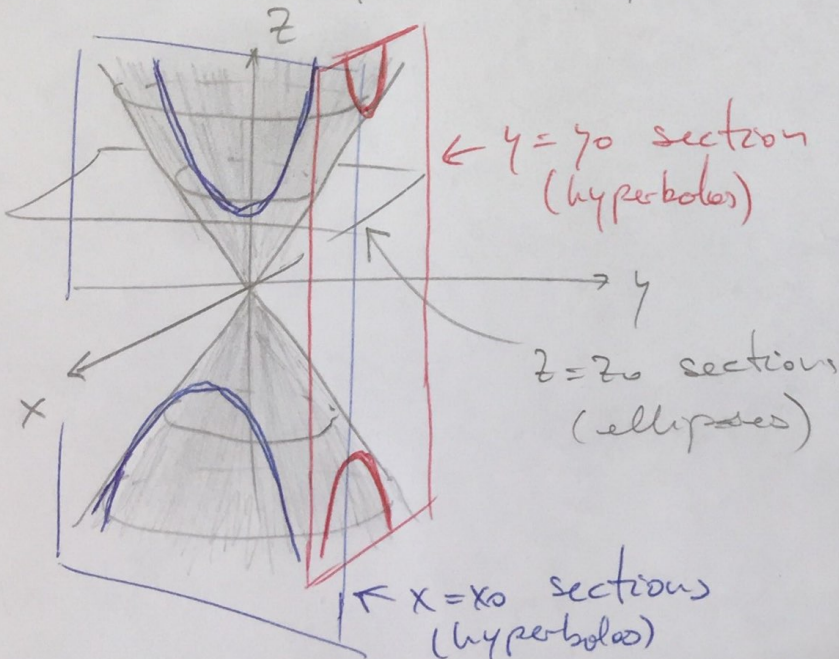 z
← y = y0 section
(hyperbolas)
y
z = z0 sections
(ellipses)
x
← x = x0 sections
(hyperbolas)